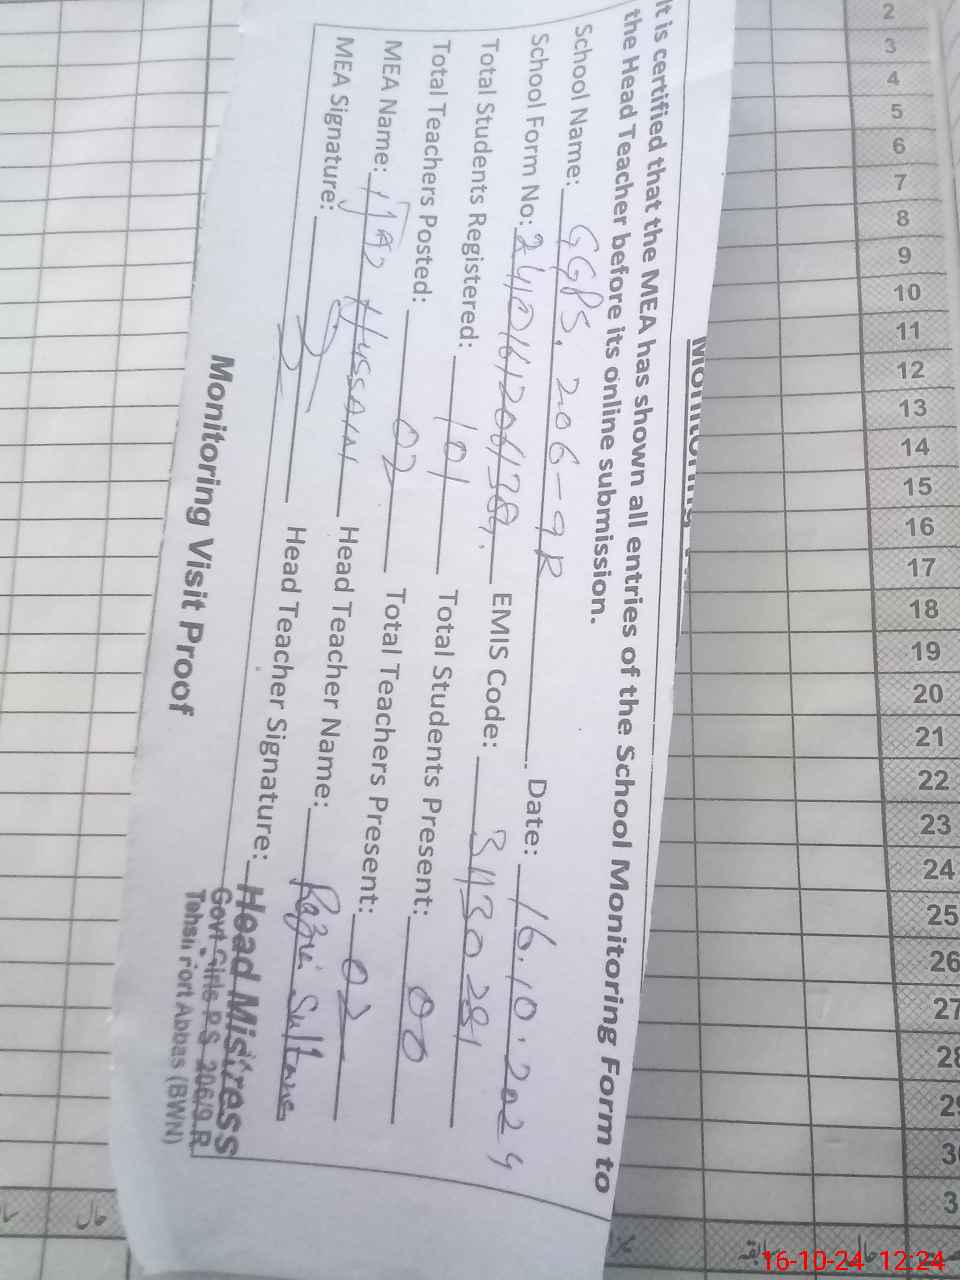 It is certified that the MEA has shown all entries of the School Monitoring Form to
the Head Teacher before its online submission.
School Name: GGPS. 206-9R Date: 16.10.2024
School Form No: EMIS Code: 3130281
Total Students Registered: 101 Total Students Present: 00
Total Teachers Posted: 02 Total Teachers Present: 02
MEA Name: Hussain Head Teacher Name: Sultana
MEA Signature: Head Teacher Signature:
Head Mistress
Govt Girls P.S 206/9.R
Tehsil Fort Abbas (BWN)
Monitoring Visit Proof
2
3
4
5
6
7
8
9
10
11
12
13
14
15
16
17
18
19
20
21
22
23
24
25
26
27
28
29
16-10-24 12:24